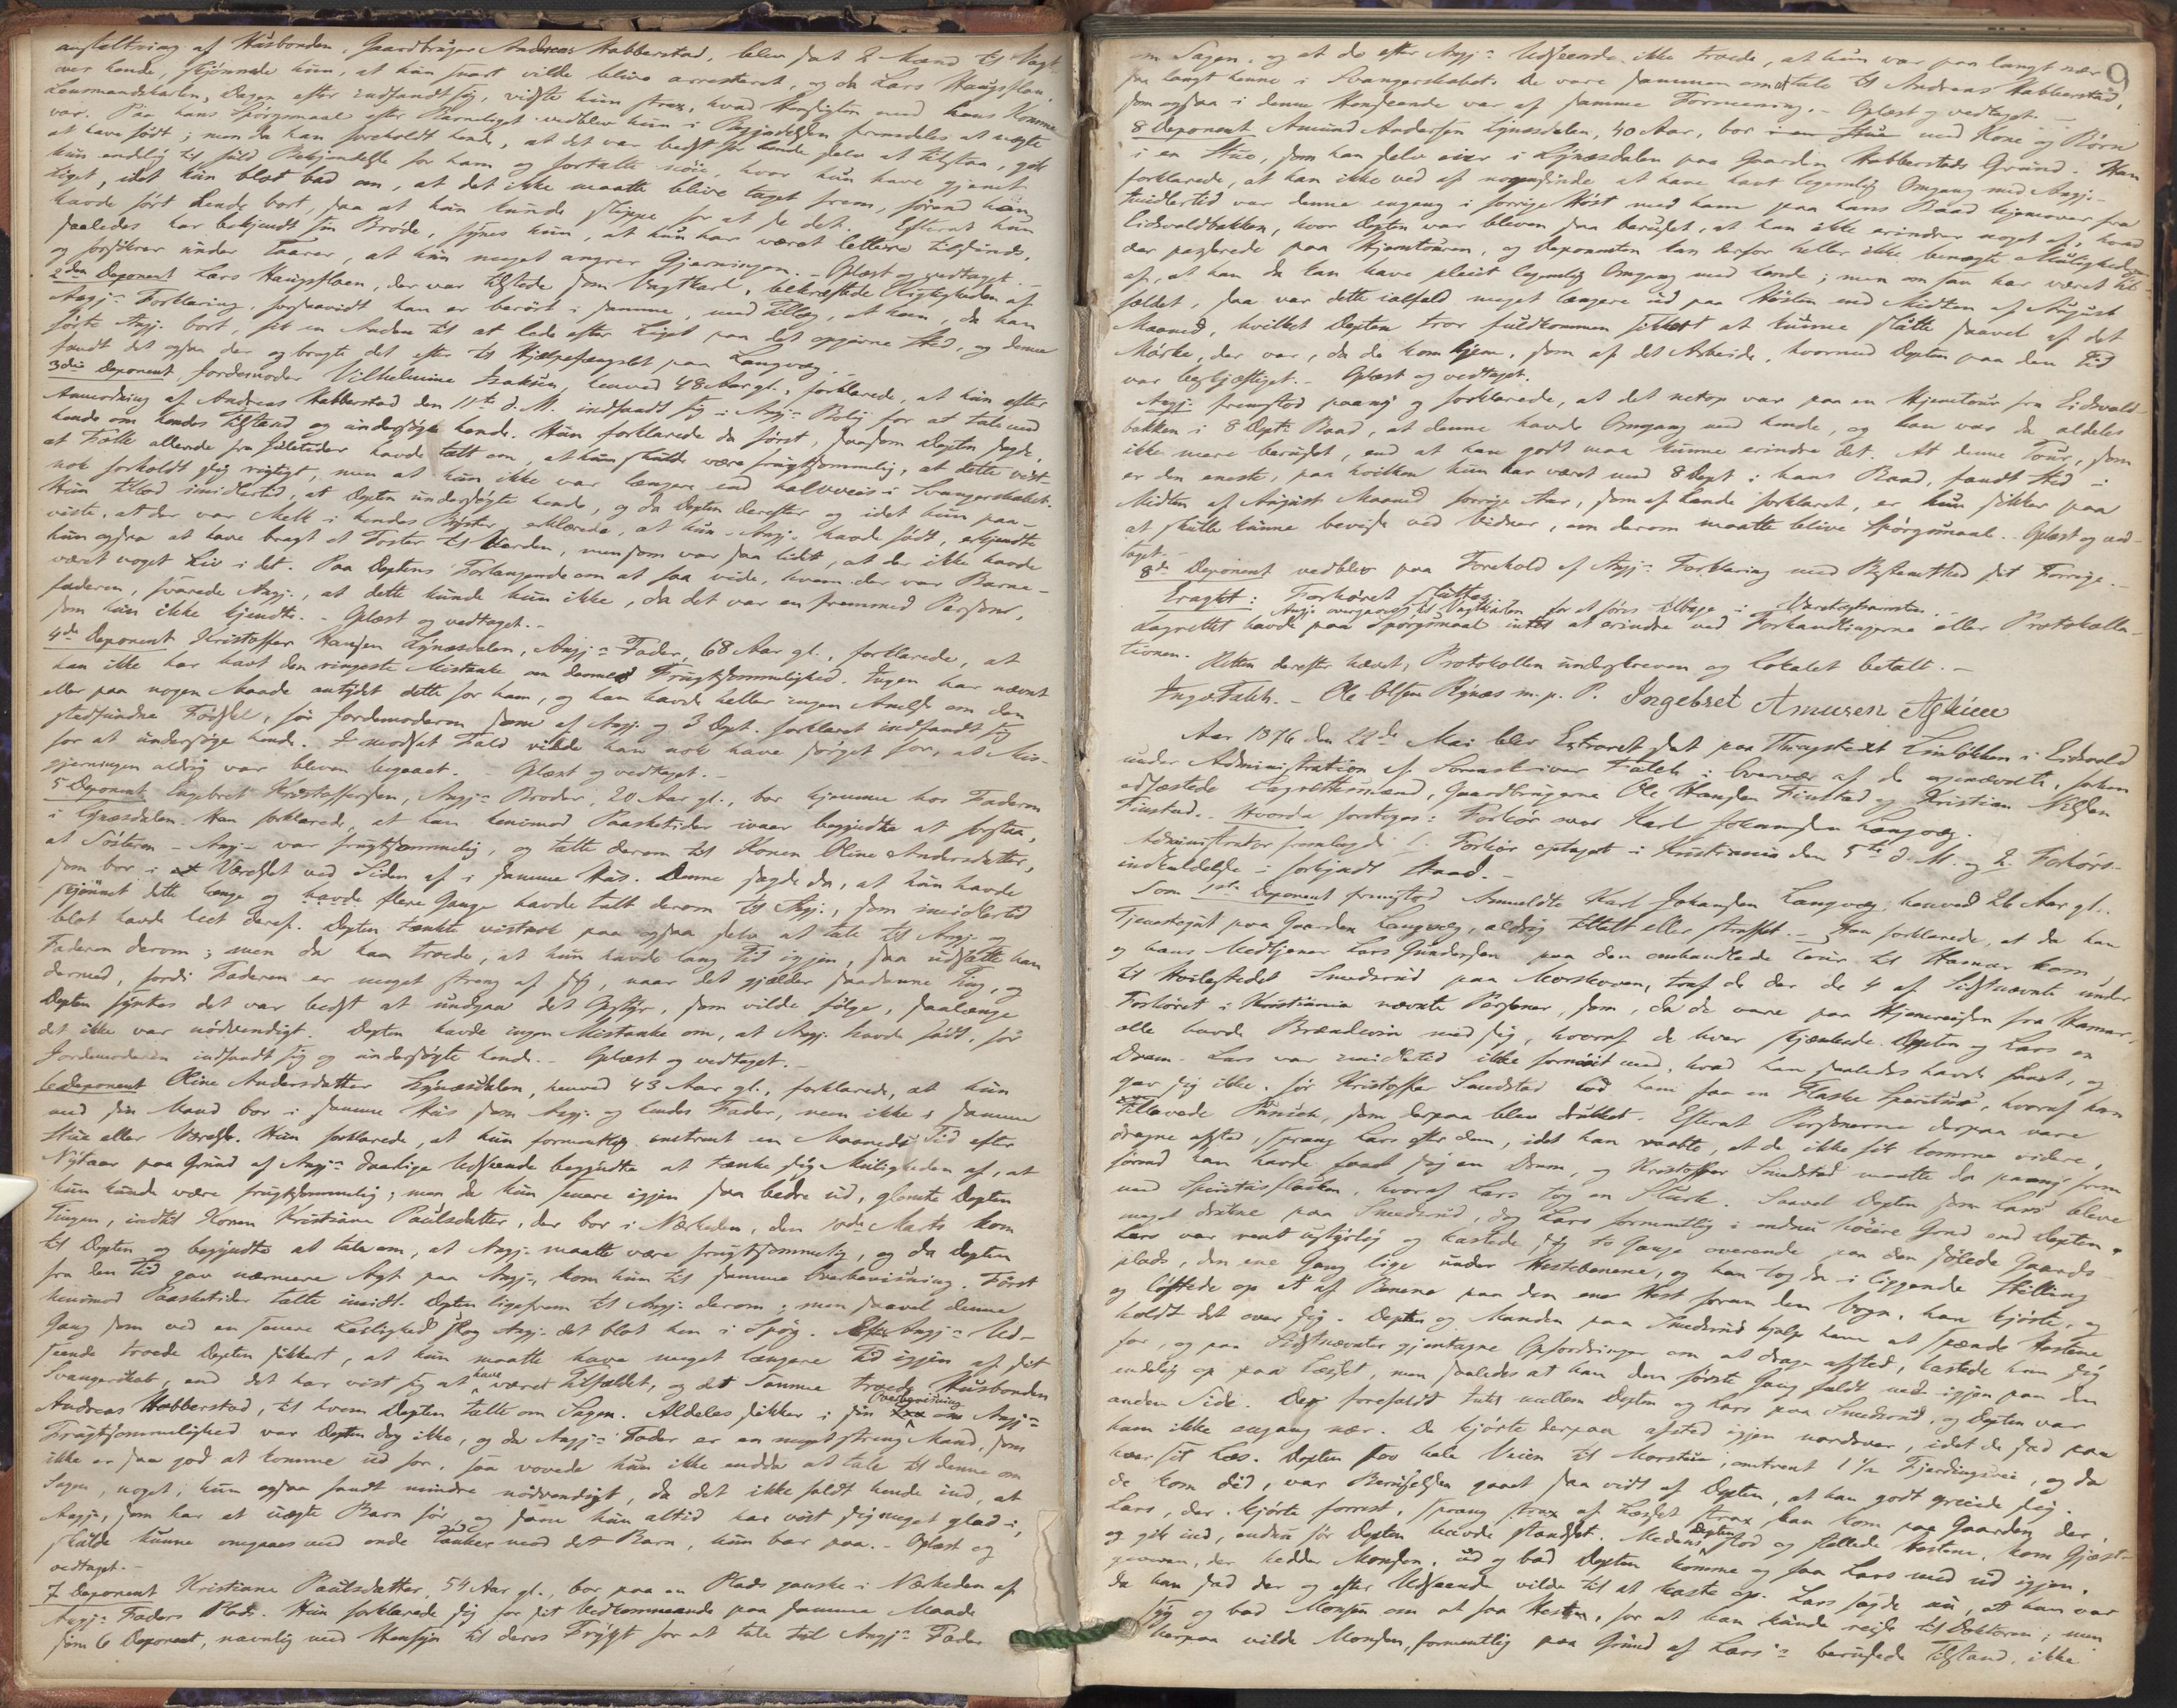 anstaltning af Husbonden, Gaardbruger Andreas Habberstad, blev sat 2 Mænd til Vagt
over hende, skjønnede hun, at hun snart vilde blive arresteret, og da Lars Haugsfloen,
Lensmandskarlen, Dagen efter indfandt sig, vidste hun strax, hvad Hensigten med hans Komme
var. Paa hans Spörgsmaal efter Barneliget vedblev hun i Begyndelsen fremdeles at nægte
at have født; men da han foreholdt hende, at det var bedst for hende selv at tilstaa, gik
hun endelig til fuld Bekjendelse for ham og fortalte nöie, hvor hun have gjemt
Liget, idet hun blot bad om, at det ikke maatte blive taget frem, förend han
havde fört hende bort, saa at hun kunde slippe for at se det. Efterat hun
saaledes har bekjendt sin Bröde, synes hun, at hun har været lettere tilsinde,
og forsikrer under Taarer, at hun meget angrer Gjerningen. - Oplæst og vedtaget. -
2den Deponent Lars Haugsfloen, der var tilstede som Vagtkarl, bekræftede Rigtigheden af
Angj:s Forklaring, forsaavidt han er berört i samme, med Tillæg, at han, da han
förte Angj. bort, fik en Anden til at lede efter Liget paa det opgivne Sted, og denne
fandt det ogsaa der og bragte det efter til Hjælpefængslet paa Langvæg. -
3die Deponent Jordemoder Vilhelmine Isaksen, henved 48 Aar gl., forklarede, at hun efter
Anmodning af Andreas Habberstad den 11te d. M. indfandt sig i Angj:s Bolig for at tale med
hende om hendes Tilstand og undersøgte hende. Hun forklarede da först, saasom Depten sagde,
at Folk allerede fra Juletider havde talt om, at hun skulde være frugtsommelig, at dette vist-
nok forholdt sig rigtigt, men at hun ikke var længere end halvveis i Svangerskabet.
Hun tillod imidlertid, at Depten undersögte hende, og da Depten derefter og idet hun paa-
viste, at der var Melk i hendes Bryster, erklærede, at hun - Angj. havde født, erkjendte
hun ogsaa at have bragt et Foster til Verden, men som var saa lidt, at der ikke havde
været noget Liv i det. Paa Deptens Forlangende om at faa vide, hvem der var Barne-
faderen, svarede Angj., at dette kunde hun ikke, da det var en fremmed Person,
som hun ikke kjendte. - Oplæst og vedtaget. -
4de Deponent Kristoffer Hansen Lynæsdalen, Angj:s Fader, 68 Aar gl., forklarede, at
han ikke har havt den ringeste Mistanke om dennes Frugtsommelighed. Ingen har nævnt
eller paa nogen Maade antydet dette for ham, og han havde heller ingen Anelse om den
stedfundne Fødsel, før Jordemoderen som af Angj. og 3 Dept. forklaret indfandt sig
for at undersøge hende. I modsat Fald vilde han nok have sørget for, at Mis-
gjerningen aldrig var bleven begaaet. - Oplæst og vedtaget. -
5 Deponent Engebret Kristoffersen, Angj:s Broder, 20 Aar gl., bor hjemme hos Faderen
i Lynæsdalen. Han forklarede, at han henimod Paasketider ivaar begyndte at forstaa,
at Søsteren - Angj. - var frugtsommelig, og talte derom til Konen Oline Andersdatter,
som bor i et Værelset ved Siden af i samme Hus. Denne sagde da, at hun havde
skjønnet dette længe og havde flere Gange havde talt derom til Angj., som imidlertid
blot havde leet deraf. Depten tænkte vistnok paa ogsaa selv at tale til Angj. og
Faderen derom; men da han troede, at hun havde lang Tid igjen, saa udsatte han
dermed, fordi Faderen er meget streng af sig, naar det gjælder saadanne Ting, og
Depten syntes det var bedst at undgaa det Opstyr, som vilde følge, saalænge
det ikke var nødvendigt. Depten havde ingen Mistanke om, at Angj. havde født, før
Jordemoderen indfandt sig og undersøgte hende. - Oplæst og vedtaget. -
6 Deponent Oline Andersdatter Lynæsdalen, henved 43 Aar gl., forklarede, at hun
med sin Mand bor i samme Hus som Angj. og hendes Fader, men ikke i samme
Stue eller Værelse. Hun forklarede, at hun formentlig omtrent en Maaneds Tid efter
Nytaar paa Grund af Angj:s daarlige Udseende begyndte at tænke sig Muligheden af, at
hun kunde være frugtsommelig; men da hun senere igjen saa bedre ud, glemte Depten
Tingen, indtil Konen Kristiane Paulsdatter, der bor i Nærheden, den 10de Marts kom
til Depten og begyndte at tale om, at Angj. maatte være frugtsommelig, og da Depten
fra den Tid gav nærmere Agt paa Angj., kom hun til samme Overbevisning. Først
henimod Paasketider talte imidl. Depten ligefrem til Angj. derom; men saavel denne
Gang som ved en senere Leilighed slog Angj. det blot hen i Spøg. Efter Angj:s Ud-
seende troede Depten sikkert, at hun maatte have meget længere Tid igjen af sit
Svangerskab, end det har vist sig at have været Tilfældet, og det Samme troede Husbonden
Andreas Habberstad, til hvem Depten talte om Sagen. Aldeles sikker i sin Overbevisning om Angj:s
Frugtsommelighed var Depten dog ikke, og da Angj:s Fader er en meget streng Mand, som
ikke er saa god at komme ud for, saa vovede hun ikke endda at tale til denne om
Sagen, noget, hun ogsaa fandt mindre nødvendigt, da det ikke faldt hende ind, at
Angj., som har et uægte Barn før, og som hun altid har vist sig meget glad i,
skulde kunne omgaaes med onde Tanker mod det Barn, hun bar paa. - Oplæst og
vedtaget. -
7 Deponent Kristiane Paulsdatter, 54 Aar gl., bor paa en Plads ganske i Nærheden af
Angj:s Faders Plads. Hun forklarede sig for sit Vedkommende paa samme Maade
som 6 Deponent, navnlig med Hensyn til deres Frygt for at tale til Angj:s Fader
om Sagen, og at de efter Angj:s Udseende ikke troede, at hun var paa langt nær
saa langt henne i Svangerskabet. De vare sammen om at tale til Andreas Habberstad,
som ogsaa i denne Henseende var af samme Formening. - Oplæst og vedtaget. -
9
8 Deponent Amund Andersen Lynæsdalen, 40 Aar, bor i en Stue med Kone og Børn
i en Stue, som han selv eier i Lynæsdalen paa Gaarden Habberstads Grund. Han
forklarede, at han ikke ved af nogensinde at have havt legemlig Omgang med Angj. -
Imidlertid var denne engang i forrige Høst med ham paa hans Baad hjemover fra
Eidsvoldbakken, hvor Depten var bleven saa beruset, at han ikke erindrer noget af, hvad
der passerede paa Hjemtouren, og Deponenten kan derfor heller ikke benægte Muligheden
af, at han da kan have pleiet legemlig Omgang med hende; men om saa har været Til-
fældet, saa var dette ialfald meget længere ud paa Høsten end Midten af August
Maaned, hvilket Depten tror fuldkommen sikkert at kunne slutte saavel af det
Mørke, der var, da de kom hjem, som af det Arbeide, hvormed Depten paa den Tid
var beskjæftiget. - Oplæst og vedtaget.
Angj. fremstod paany og forklarede, at det netop var paa en Hjemtour fra Eidsvold-
bakken i 8 Depts Baad, at denne havde Omgang med hende, og han var da aldeles
ikke mere beruset, end at han godt maa kunne erindre det. At denne Tour, som
er den eneste, paa hvilken hun har været med 8 Dept i hans Baad, fandt Sted i
Midten af August Maaned forrige Aar, som af hende forklaret, er hun sikker paa
at skulle kunne bevise ved Vidner, om derom maatte blive Spørgsmaal. - Oplæst og ved-
taget. -
8de Deponent vedblev paa Forehold af Angj:s Forklaring med Bestemthed sit Forrige. -
Eragtet: Forhøret sluttes.
Angj. overgaves til Vagtkarlen for at føres tilbage i Varetægtsarresten. -
Lagrettet havde paa Spørgsmaal intet at erindre ved Forhandlingerne eller Protokolla-
tionen. Retten derefter hævet, Protokollen underskreven og Lokalet betalt. -
Inge Falch. - Ole Olsen Rynæs m. p. P. Ingebret Amunsen Askim
Aar 1876 den 22de Mai blev Extraret sat paa Thingstedet Lindløkken i Eidsvold
under Administration af Sorenskriver Falch i Overvær af de opnævnte, forhen
edfæstede Lagrettesmænd, Gaardbrugerne Ole Hansen Finstad og Kristian Nilsen
Finstad. - Hvorda foretoges: Forhør over Karl Johansen Langvæg.
Administrator fremlagde 1. Forhør optaget i Kristiania den 5te d. M. og 2. Forhørs-
indkaldelse i forkyndt Stand. -
Som 1ste Deponent fremstod Anmeldte Karl Johansen Langvæg, henved 26 Aar gl.,
Tjenestegut paa Gaarden Langvæg, aldrig tiltalt eller straffet. - Han forklarede, at da han
og hans Medtjener Lars Gundersen paa den omhandlede Tour til Hamar kom
til Hvilestedet Smedsrud paa Morskoven, traf de der de 4 af Sidstnævnte under
Forhøret i Kristiania nævnte Personer, som, da de vare paa Hjemreisen fra Hamar,
alle havde Brændevin med sig, hvoraf de hver skjænkede Depten og Lars en
Dram. Lars var imidlertid ikke fornøiet med, hvad han saaledes havde faaet, og
gav sig ikke, før Kristoffer Smedstad lod ham faa en Flaske Spiritus, hvoraf han
tillavede Punsch, som derpaa blev drukket. Efterat Personerne derpaa vare
dragne afsted, sprang Lars efter dem, idet han raabte, at de ikke fik komme videre,
førend han havde faaet sig en Dram, og Kristoffer Smedstad maatte da paany frem
med Spiritusflasken, hvoraf Lars tog en Slurk. Saavel Depten som Lars bleve
meget drukne paa Smedsrud, dog Lars formentlig i endnu høiere Grad end Depten.
Lars var rent ustyrlig og kastede sig to Gange overende paa den sølede Gaards-
plads, den ene Gang lige under Hestebenene, og han tog da i liggende Stilling
og løftede op et af Benene paa den ene Hest foran den Vogn, han kjørte, og
holdt det over sig. Depten og Manden paa Smedsrud hjalp ham at spænde Hestene
for, og paa Sidstnævntes gjentagne Opfordringer om at drage afsted, kastede han sig
endelig op paa Læsset, men saaledes at han den første Gang faldt ned igjen paa den
anden Side. Der forefaldt intet mellem Depten og Lars paa Smedsrud, og Depten var
ham ikke engang nær. De kjørte derpaa afsted igjen nordover, idet de sad paa
hver sit Læs. Depten sov hele Veien til Morstue, omtrent 1 1/2 Fjerdingsvei, og da
de kom did, var Beruselsen gaaet saa vidt af Depten, at han godt greiede sig.
Lars, der kjørte forrest, sprang strax af Læsset strax han kom paa Gaarden der,
og gik ind, endnu før Depten havde standset. Medens Depten stod og stellede Hestene, kom Gjæst-
giveren, der hedder Monsen, ud og bad Depten komme og faa Lars med ud igjen,
da han sad der og efter Udseende vilde til at kaste op. Lars sagde nu, at han var
syg og bad Monsen om at faa Hesten, for at han kunde reise til Doktoren; men
herpaa vilde Monsen, formentlig paa Grund af Lars's berusede Tilstand, ikke